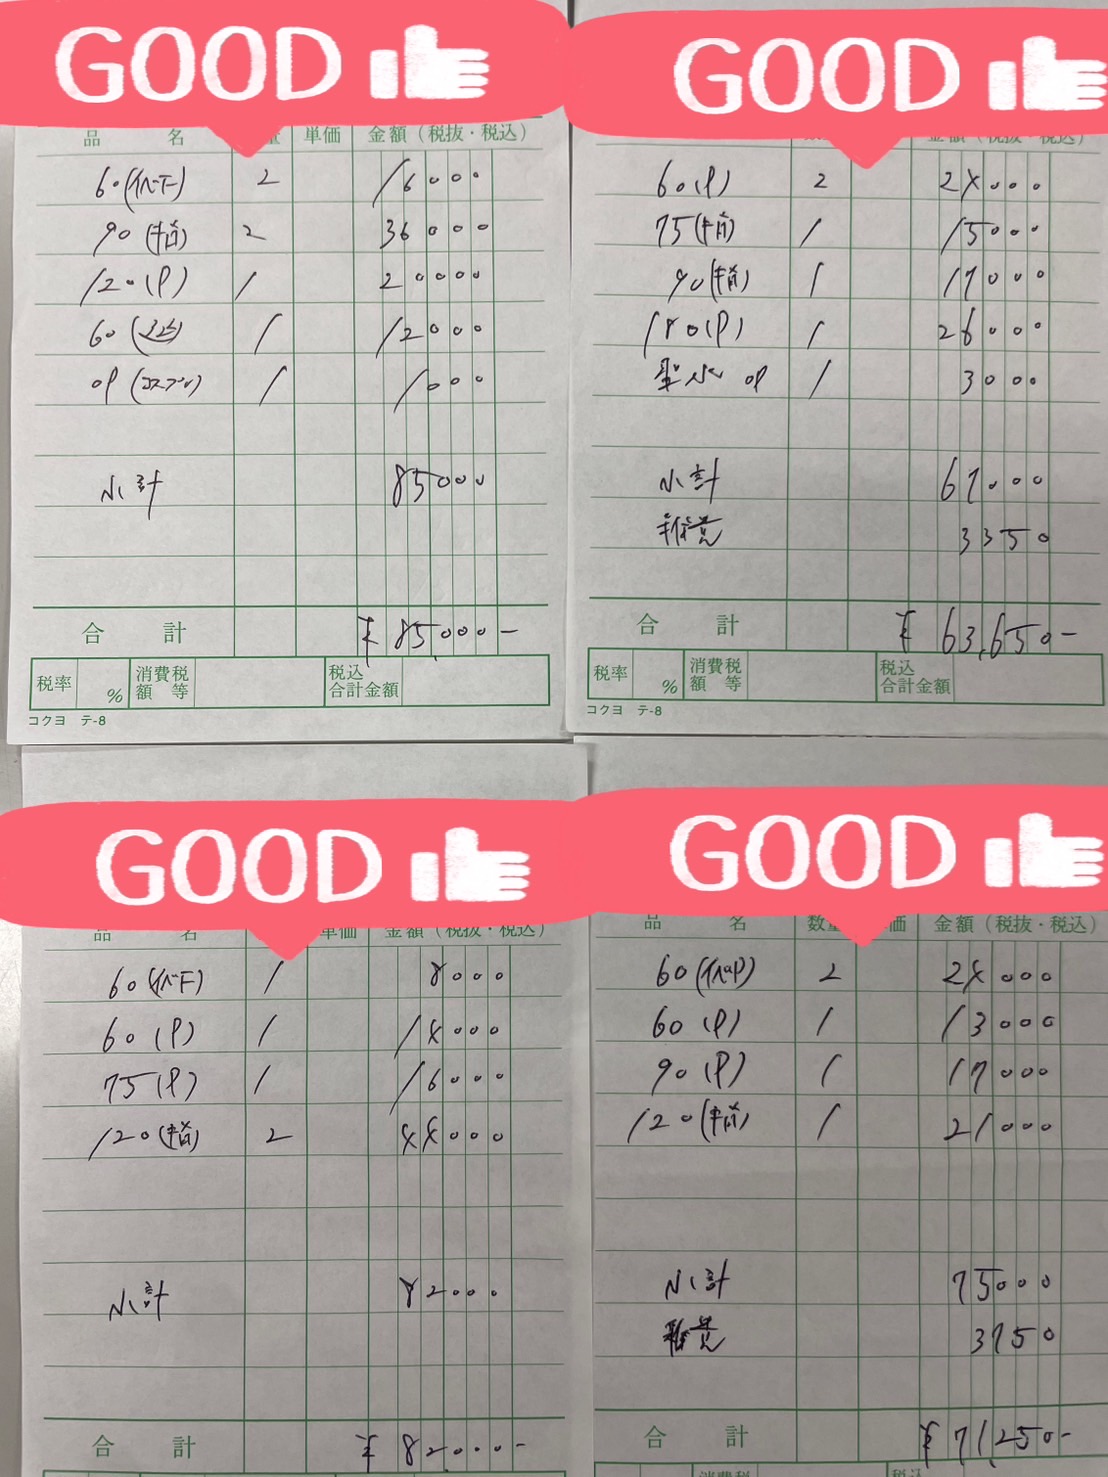 GOOD
品 名 量 単価 金額（税抜・税込）
60(イベント) 2 16000
90(指) 2 36000
120(P) 1 20000
60 1 12000
OP(コスプレ) 1 1000
小計 85000
合計 ¥85,000-
税率 % 消費税額等 税込合計金額
コクヨ テ-8
GOOD
金額（税抜・税込）
60(P) 2 24000
75(指) 1 15000
90(指) 1 17000
180(P) 1 26000
聖水 OP 1 3000
小計 67000
雑費 3350
合計 ¥63,650-
税率 % 消費税額等 税込合計金額
コクヨ テ-8
GOOD
品 名 単価 金額（税抜・税込）
60 1 8000
60(P) 1 14000
75(P) 1 16000
120(指) 2 44000
小計 82000
合計 ¥82,000-
GOOD
品 名 数量 単価 金額（税抜・税込）
60 2 24000
60(P) 1 13000
90(P) 1 17000
120(指) 1 21000
小計 75000
雑費 3750
合計 ¥71,250-
消費税 税込